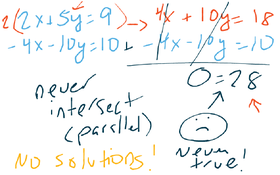 2(2x+5y=9) → 4x + 10y = 18
-4x-10y=10 + -4x-10y=10
0=28
never
intersect
(parallel)
No solutions!
Never
true!